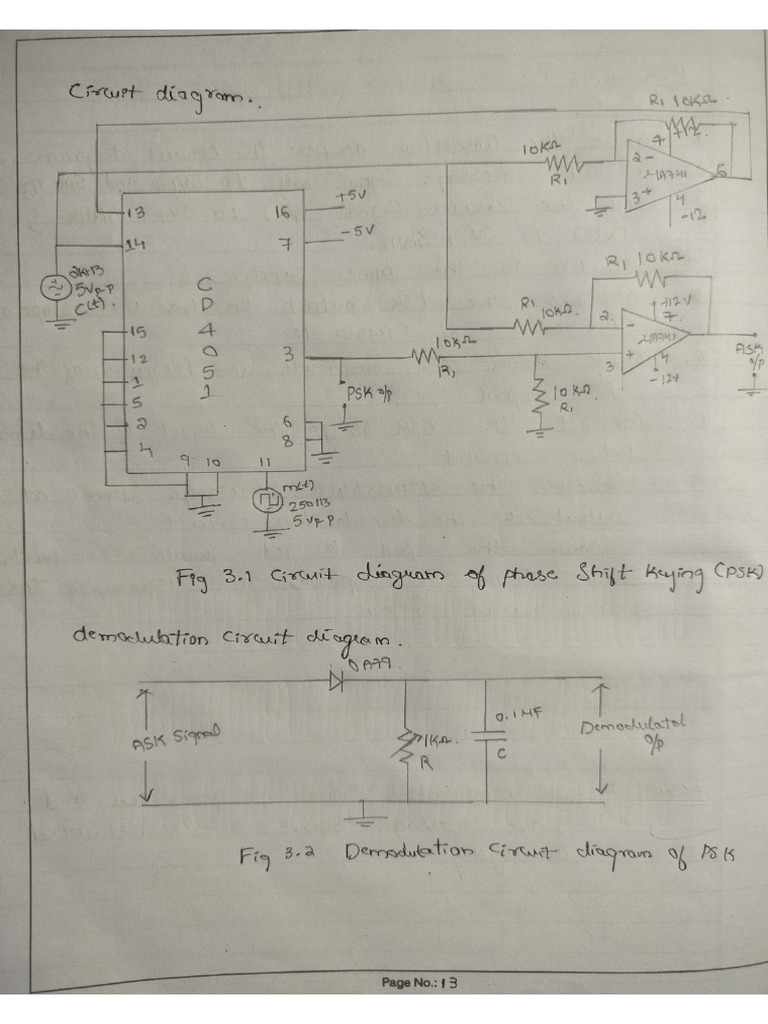 Circuit diagram.
R1 10KΩ
10KΩ
R1
7
2 -
μA741
6
3 +
4
-12
13
16
+5V
14
7
-5V
2KHz
5Vp-p
C(t).
C
D
4
0
5
1
R1 10KΩ
R1
10KΩ
2.
-
+12V
7
μA741
ASK
o/p
+
3
4
-12V
15
12
1
5
2
4
3
10KΩ
R1
PSK o/p
10KΩ
R1
6
8
9 10 11
m(t)
250Hz
5Vp-p
Fig 3.1 Circuit diagram of phase Shift Keying (PSK)
demodulation Circuit diagram.
OA79
ASK Signal
1KΩ
R
0.1MF
C
Demodulated
o/p
Fig 3.2 Demodulation Circuit diagram of PSK
Page No.: 13